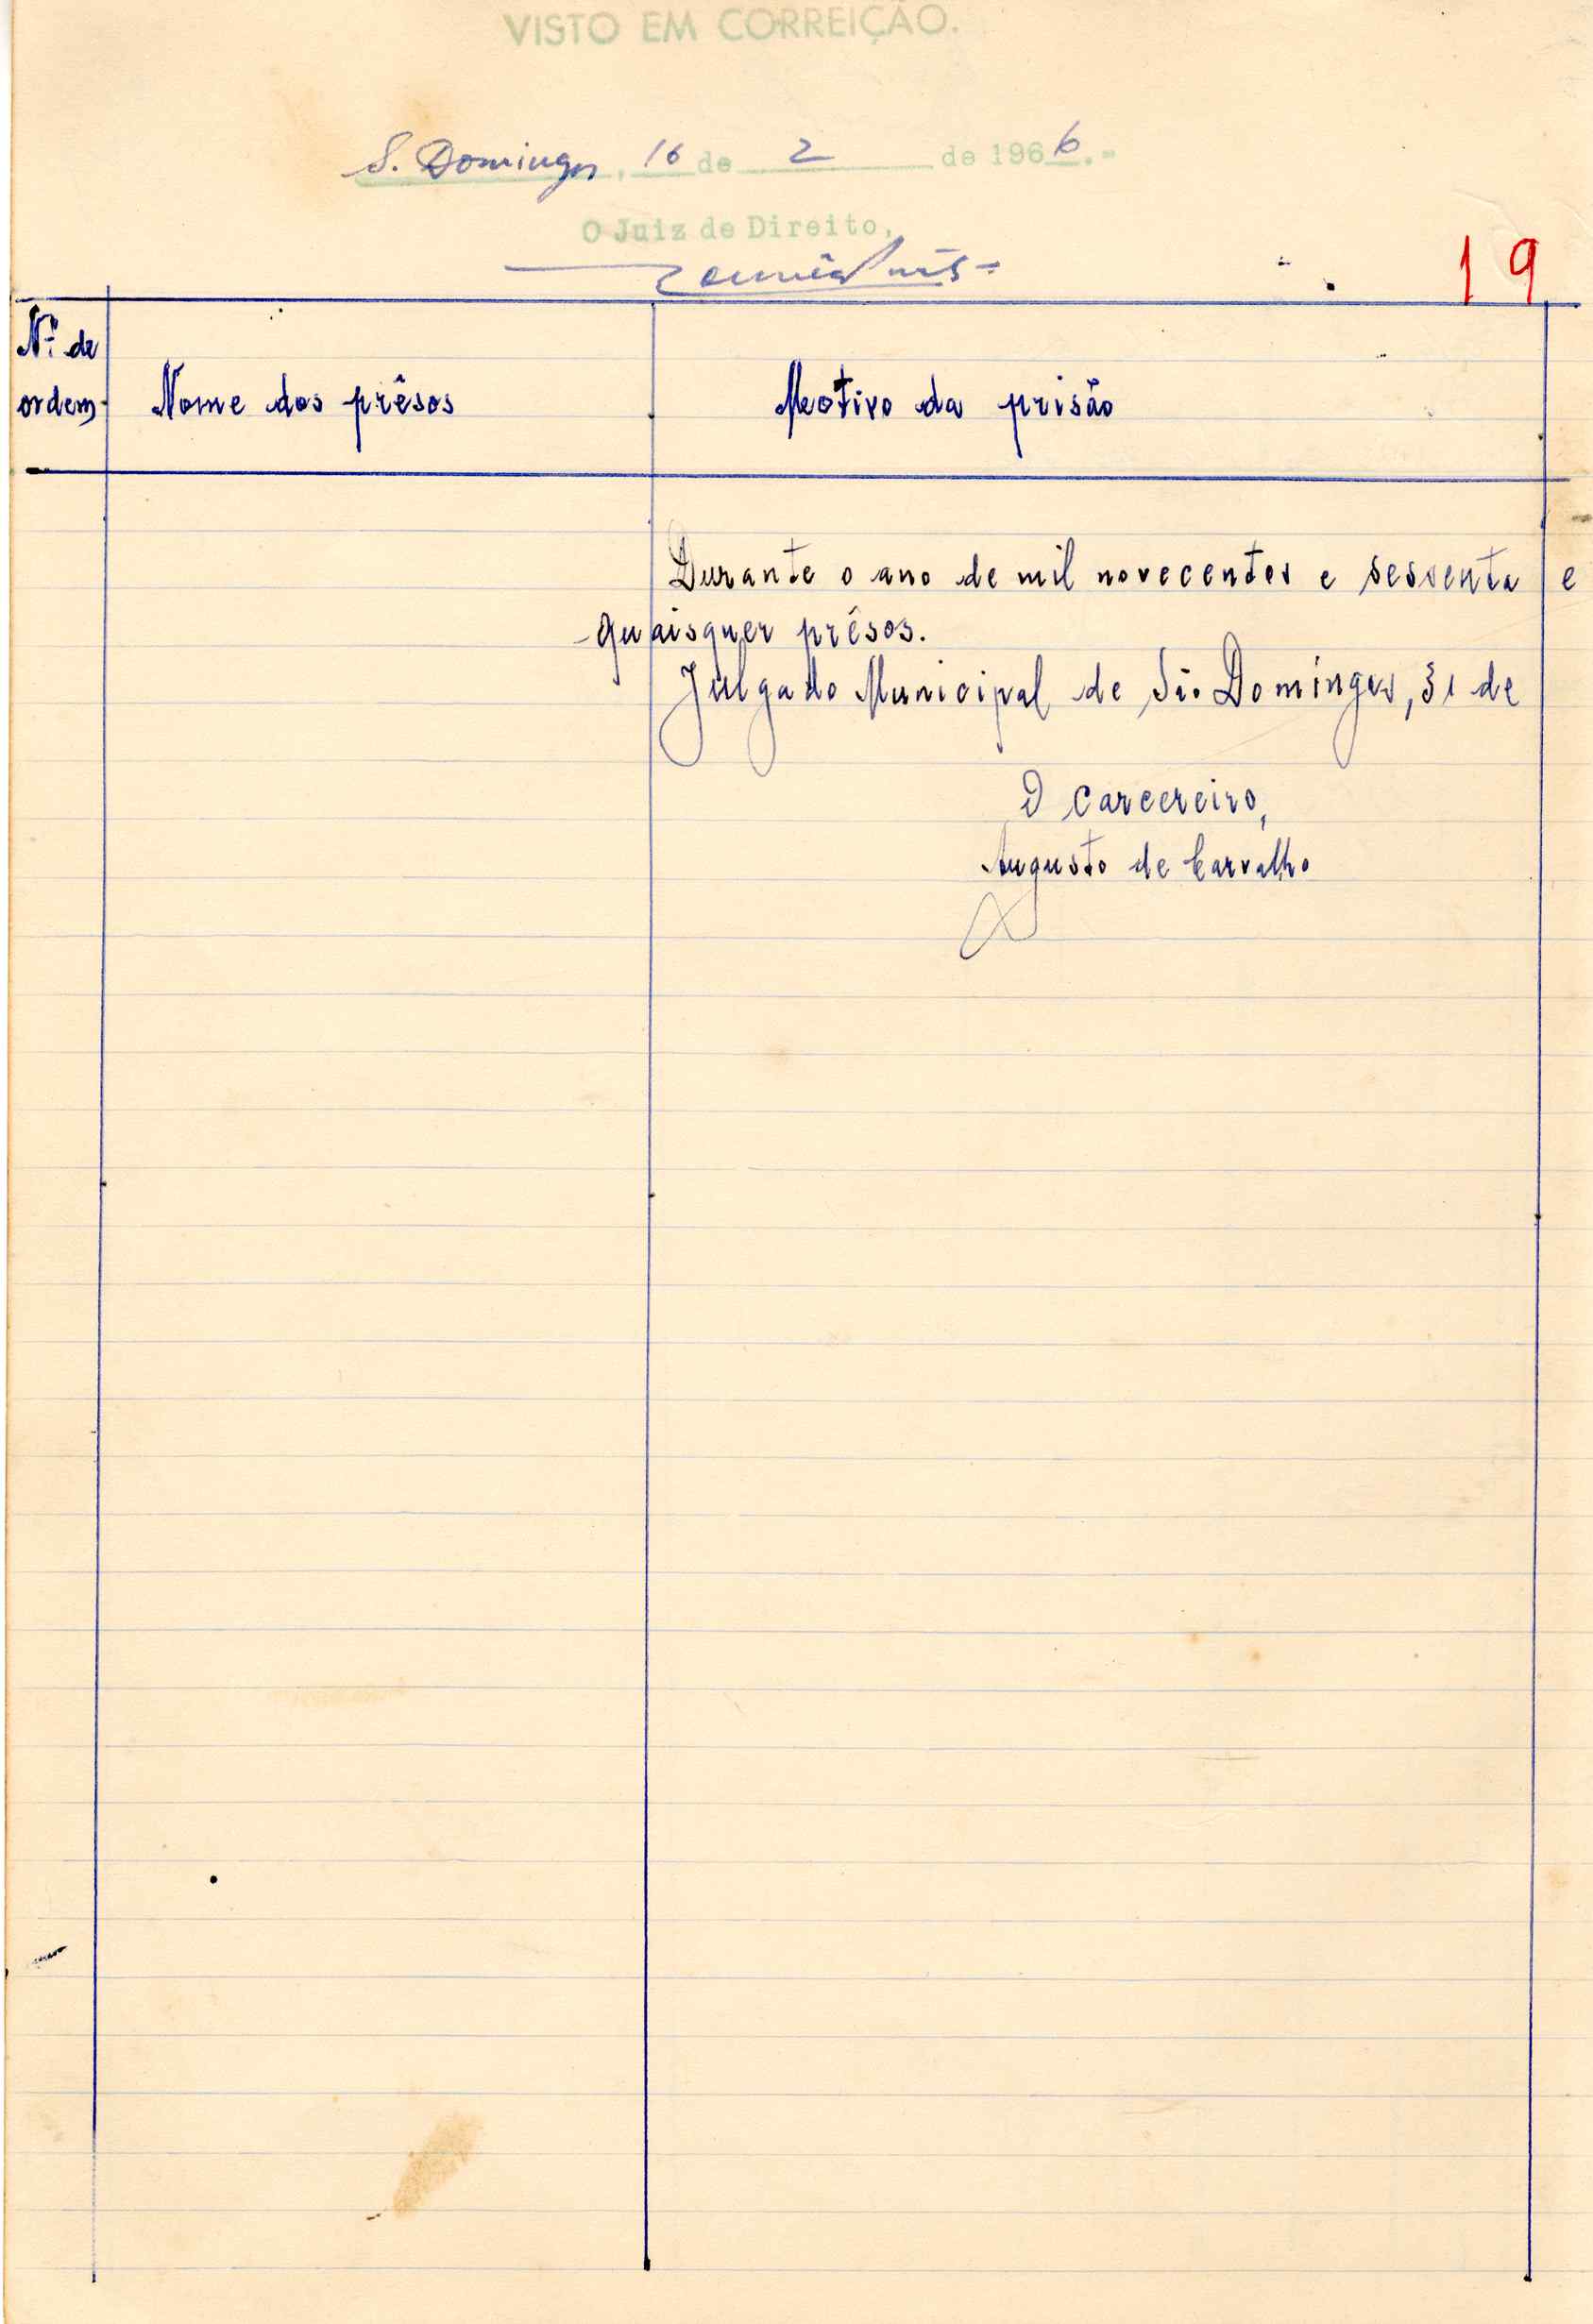 VISTO EM CORREIÇÃO.
S. Domingos, 16 de 2 de 1966.-
O Juiz de Direito,
19
Nº de
ordem
Nome dos prêsos
Motivo da prisão
Durante o ano de mil novecentos e sessenta e
quaisquer prêsos.
Julgado Municipal de São Domingos, 31 de
O Carcereiro,
Augusto de Carvalho